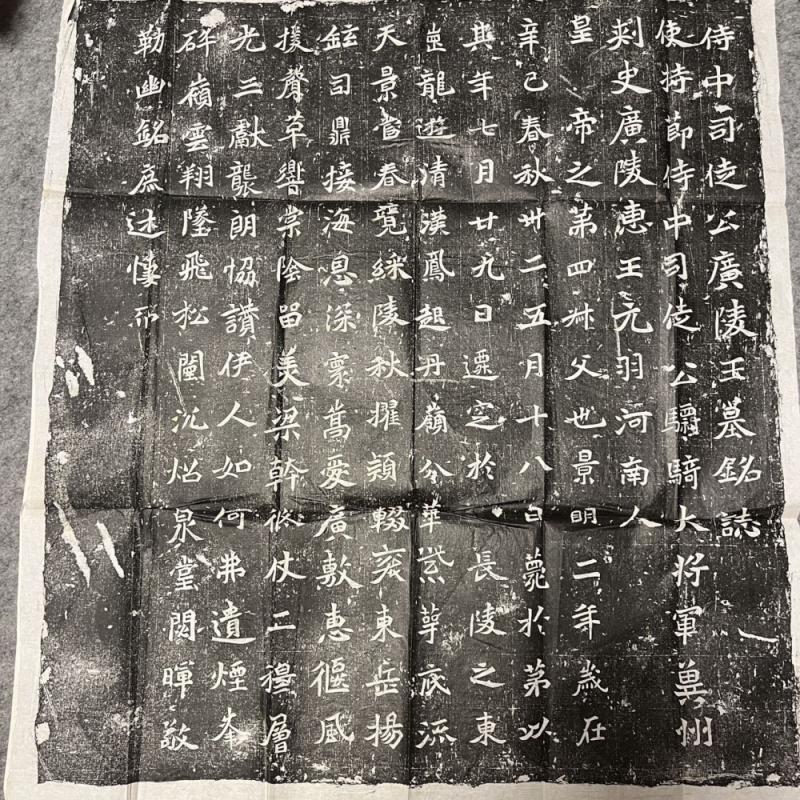 侍中司徒公廣陵王墓銘誌
使持節侍中司徒公驃騎大將軍冀州
刺史廣陵惠王元羽河南人
皇帝之第四叔父也景明二年歲在
辛巳春秋卅二五月十八日薨於第以
其年七月廿九日遷窆於長陵之東
崗龍遊清漢鳳起丹嶺分華紫萼底流
天景睿春竟綵陵秋擢穎輟袞東岳揚
鉉司鼎接海恩深稟嵩愛廣敷惠偃風
援聲草響棠陰留美梁幹後仗二穆層
光三獻襲朗協讚伊人如何弗遺煙峯
碎嶺雲翔墜飛松闈沉炤泉堂閟暉敬
勒幽銘庶述悽而